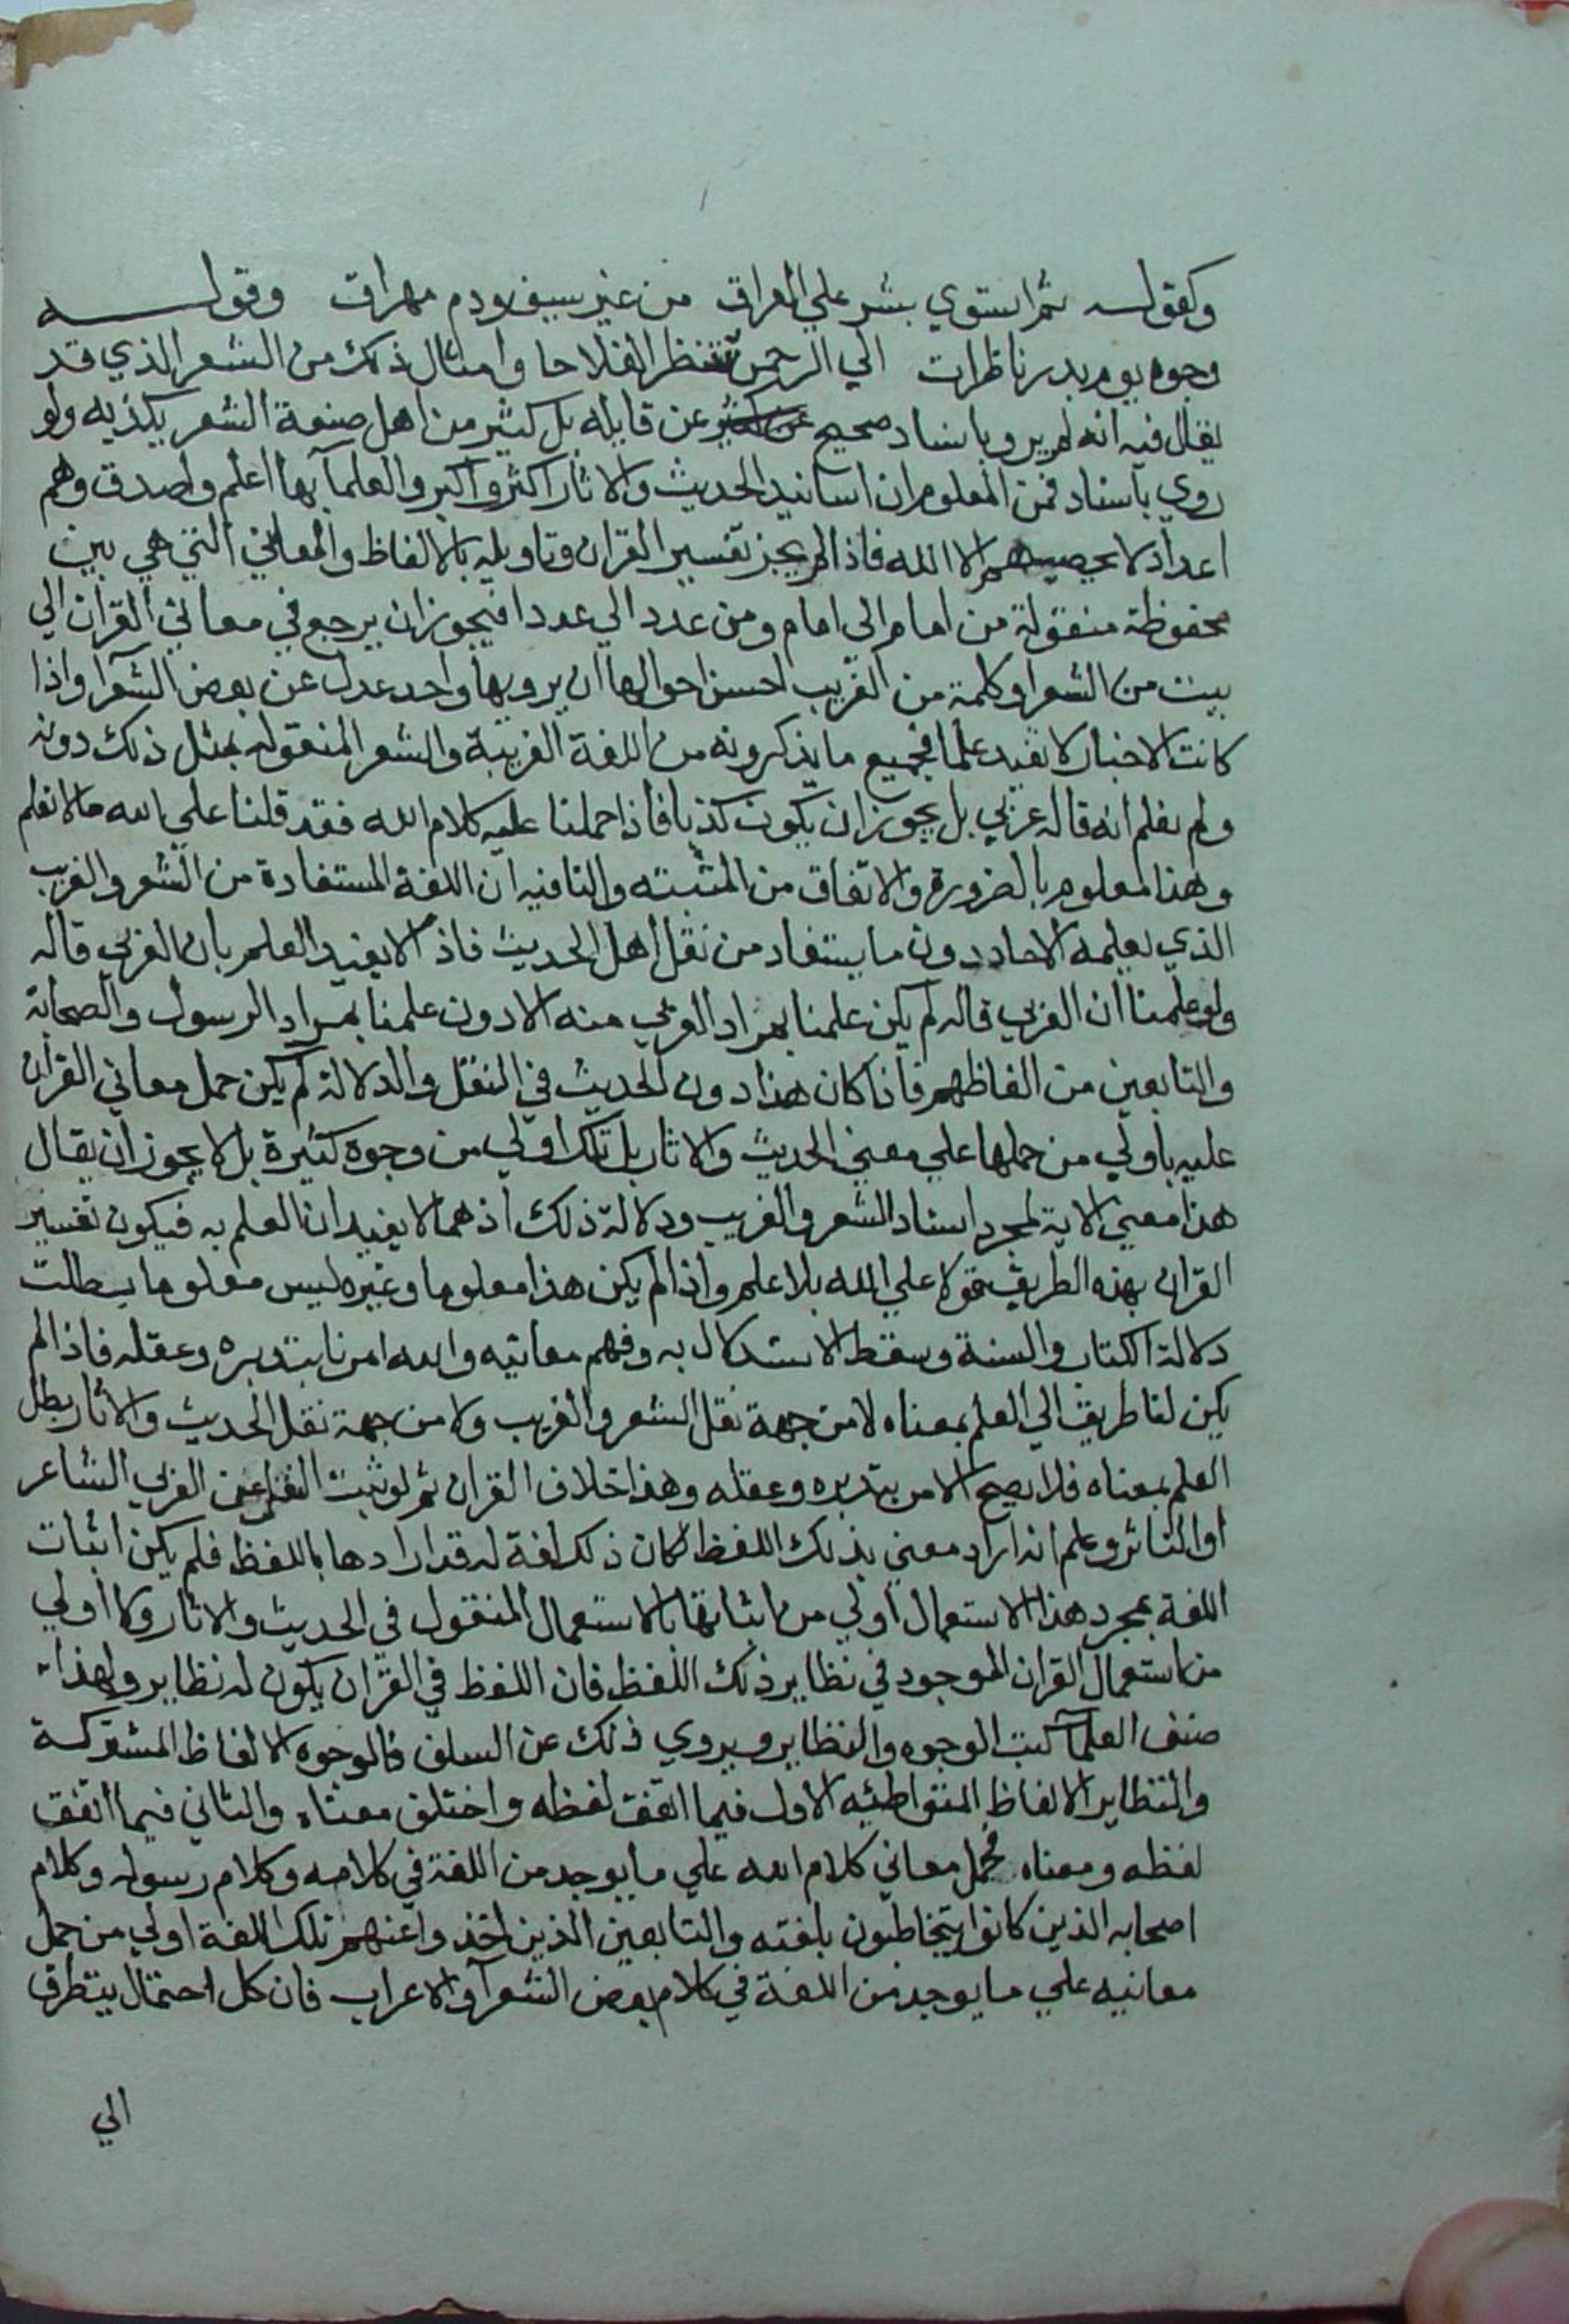 وكقوله ثم استوي بشر علي العراق من غير سيف ودم مهراق وقوله
وجوه يوم بدر ناظرات الي الرحمن تنتظر الفلاحا وامثال ذلك من الشعر الذي قد
يقال فيه انه لم يرو باسناد صحيح عن قايله بل كثير من اهل صنعة الشعر يكذبه ولو
روي باسناد فمن المعلوم ان اسانيد الحديث والاثار اكثر واكبر والعلمآ بها اعلم واصدق وهم
اعداد لا يحصيهم الا الله فاذا لم يجز تفسير القران وتاويله بالالفاظ والمعاني التي هي بين
محفوظة منقولة من امام الي امام ومن عدد الي عدد افيجوز ان يرجع في معاني القران الي
بيت من الشعر او كلمة من الغريب احسن احوالها ان يرويها واحد عدل عن بعض الشعرآ واذا
كانت الاخبار لا تفيد علما فجميع ما يذكرونه من اللغة الغريبة والشعر المنقوله بمثل ذلك دونه
ولم نعلم انه قاله عربي بل يجوز ان يكون كذبا فاذا حملنا عليه كلام الله فقد قلنا علي الله مالا نعلم
وهذا معلوم بالضرورة والاتفاق من المثبته والنافيه ان اللغة المستفادة من الشعر والغريب
الذي يعلمه الاحاد دون ما يستفاد من نقل اهل الحديث فاذا لا يفيد العلم بان العربي قاله
ولو علمنا ان العربي قاله لم يكن علمنا بمراد العربي منه الا دون علمنا بمراد الرسول والصحابة
والتابعين من الفاظهم فاذا كان هذا دون الحديث في النقل والدلالة لم يكن حمل معاني القران
عليه باولي من حملها علي معني الحديث والاثار بل تلك اولي من وجوه كثيرة بل لا يجوز ان يقال
هذا معني الاية لمجرد اسناد الشعر والغريب ودلالة ذلك اذ هما لا يفيدان العلم به فيكون تفسير
القران بهذه الطريق قولا علي الله بلا علم واذا لم يكن هذا معلوما وغيره ليس معلوما بطلت
دلالة الكتاب والسنة وسقط الاستدلال به وفهم معانيه والله امرنا بتدبره وعقله فاذا لم
يكن لنا طريق الي العلم بمعناه لا من جهة نقل الشعر والغريب ولا من جهة نقل الحديث والاثار بطل
العلم بمعناه فلا يصح الامر بتدبره وعقله وهذا خلاف القران ثم لو ثبت النقل عن العربي الشاعر
او الناثر وعلم انه اراد معني بذلك اللفظ لكان ذلك لغة له قد ارادها باللفظ فلم يكن اثبات
اللغة بمجرد هذا الاستعمال اولي من اثباتها بالاستعمال المنقول في الحديث والاثار ولا اولي
من استعمال القران الموجود في نظاير ذلك اللفظ فان اللفظ في القران يكون له نظاير ولهذا
صنف العلمآ كتب الوجوه والنظاير ويروي ذلك عن السلف فالوجوه الالفاظ المشتركة
والنظاير الالفاظ المتواطئه الاول فيما اتفق لفظه واختلف معناه والثاني فيما اتفق
لفظه ومعناه فحمل معاني كلام الله علي ما يوجد من اللغة في كلامه وكلام رسوله وكلام
اصحابه الذين كانوا يتخاطبون بلغته والتابعين الذين اخذوا عنهم تلك اللغة اولي من حمل
معانيه علي ما يوجد من اللغة في كلام بعض الشعرآ والاعراب فان كل احتمال يتطرق
الي